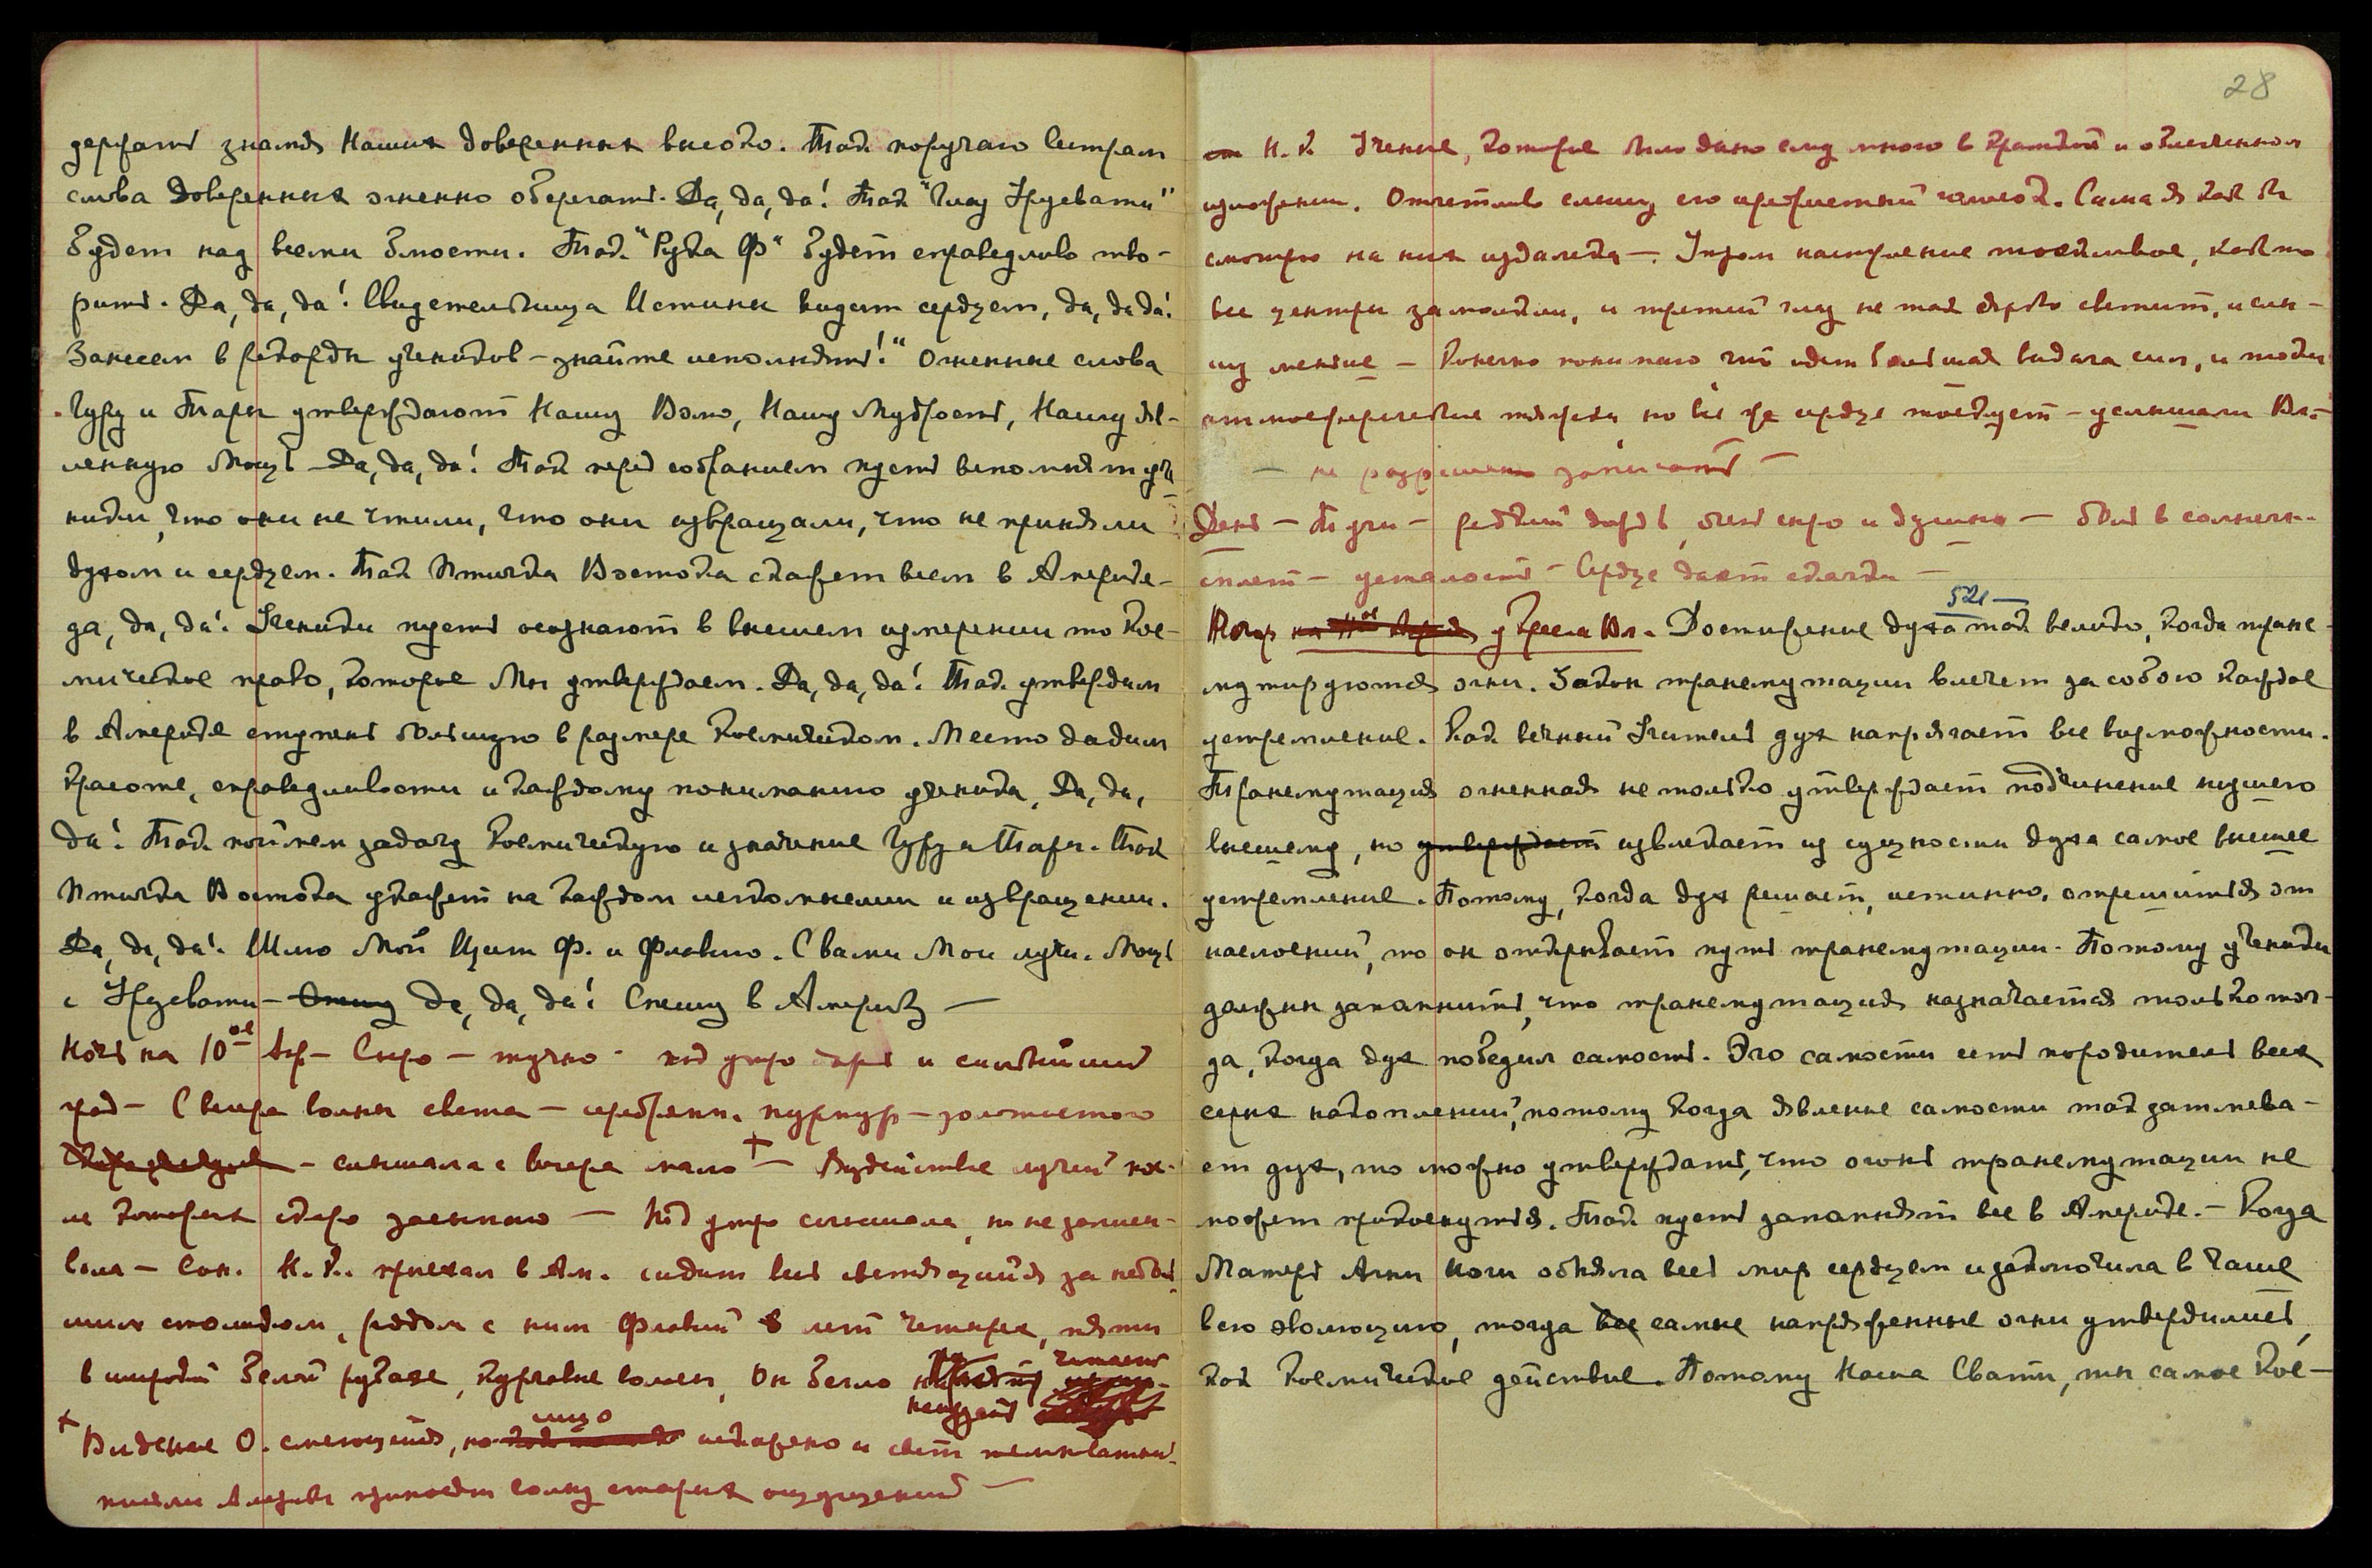 держать знамя Наших доверенных высоко. Так поручаю сестрам
слова доверенных огненно оберегать. Да, да, да! Так "Глаз Урусвати"
будет над всеми блюсти. Так "Рука Ф" будет справедливо тво-
рить. Да, да, да! Свидетельница Истины видит сердцем, да, да да!
Занесем в рекорды учеников – знайте исполнять!" Огненные слова
Гуру и Тары утверждают Нашу Волю, Нашу Мудрость, Нашу яв-
ленную Мощь – Да, да, да! Так перед собранием пусть вспомнят уче
ники, что они не чтили, что они извращали, что не приняли
духом и сердцем. Так Птичка Востока скажет всем в Америке –
да, да, да! Ученики пусть осознают в высшем измерении то Кос-
мическое право, которое Мы утверждаем. Да, да, да! Так утвердим
в Америке ступень большую в размере Космическом. Место дадим
Красоте, справедливости и каждому пониманию ученика, Да, да,
да! Так поймем задачу Космическую и значение Гуру и Тары. Так
Птичка Востока укажет на каждом непонимании и извращении.
Да, да, да! Шлю Мой Щит Ф. и Флавию. С вами Мои лучи. Мощь
с Урусвати – да, да, да! Спешу в Америку –
Ночь на 10ое Апр – Сыро – тучно – под утро буря и сильнейший
град – С вечера волны света – серебрян. пурпур – золотистого
– слышала с вечера мало + – Воздействие лучей пос-
ле которых скоро засыпаю – Под утро слышала, но не запис-
вала – Сон. Н.К. приехал в Ам. сидит весь светящийся за неболь-
шим столиком, рядом с ним Флавий лет четырех, пяти
в широкой белой рубахе, кудрявые волосы, Он бегло читает
наизусть
+ Видение О. смеющийся, но лицо искажено и свет
письма принесли волну старых ощущений –
28
Н.К. Учение, которое было дано ему много в краткой и облегченном
изложении. Отчетливо слышу его прелестный голосок. Сама я как бы
смотрю на них издалека –. Утром настроение тоскливое, как то
все центры замолкли, и третий глаз не так ярко светит, и слы-
шу меньше – Конечно понимаю что идет большая выдача сил, и токи
атмосферические тяжки но все же сердце тоскует – услышали Вл. –
– не разрешено записать –
День – Тучи – редкий дождь, очень сыро и душно – боли в солнечн.
сплет – усталость – Сердце дает скачки –
521 –
Вечер у Кресла Вл. Достижение духа так велико, когда транс-
мутируются огни. Закон трансмутации влечет за собою каждое
устремление. Как вечный Учитель дух напрягает все возможности.
Трансмутация огненная не только утверждает подчинение низшего
высшему, но утверждает извлекает из сущности духа самое высшее
устремление. Потому, когда дух решает, истинно, отрешиться от
наслоений, то он открывает путь трансмутации. Потому ученики
должны запомнить, что трансмутация назначается только тог-
да, когда дух победил самость. Эго самости есть породитель всех
серых накоплений, потому когда явление самости так затмева-
ет дух, то можно утверждать, что огонь трансмутации не
может прикоснуться. Так пусть запомнят все в Америке. – Когда
Матерь Агни Йоги обняла весь мир сердцем и заключила в чаше
всю эволюцию, тогда все самые напряженные огни утвердились,
как Космическое действие. Потому Наша Свати, ты самое Кос-